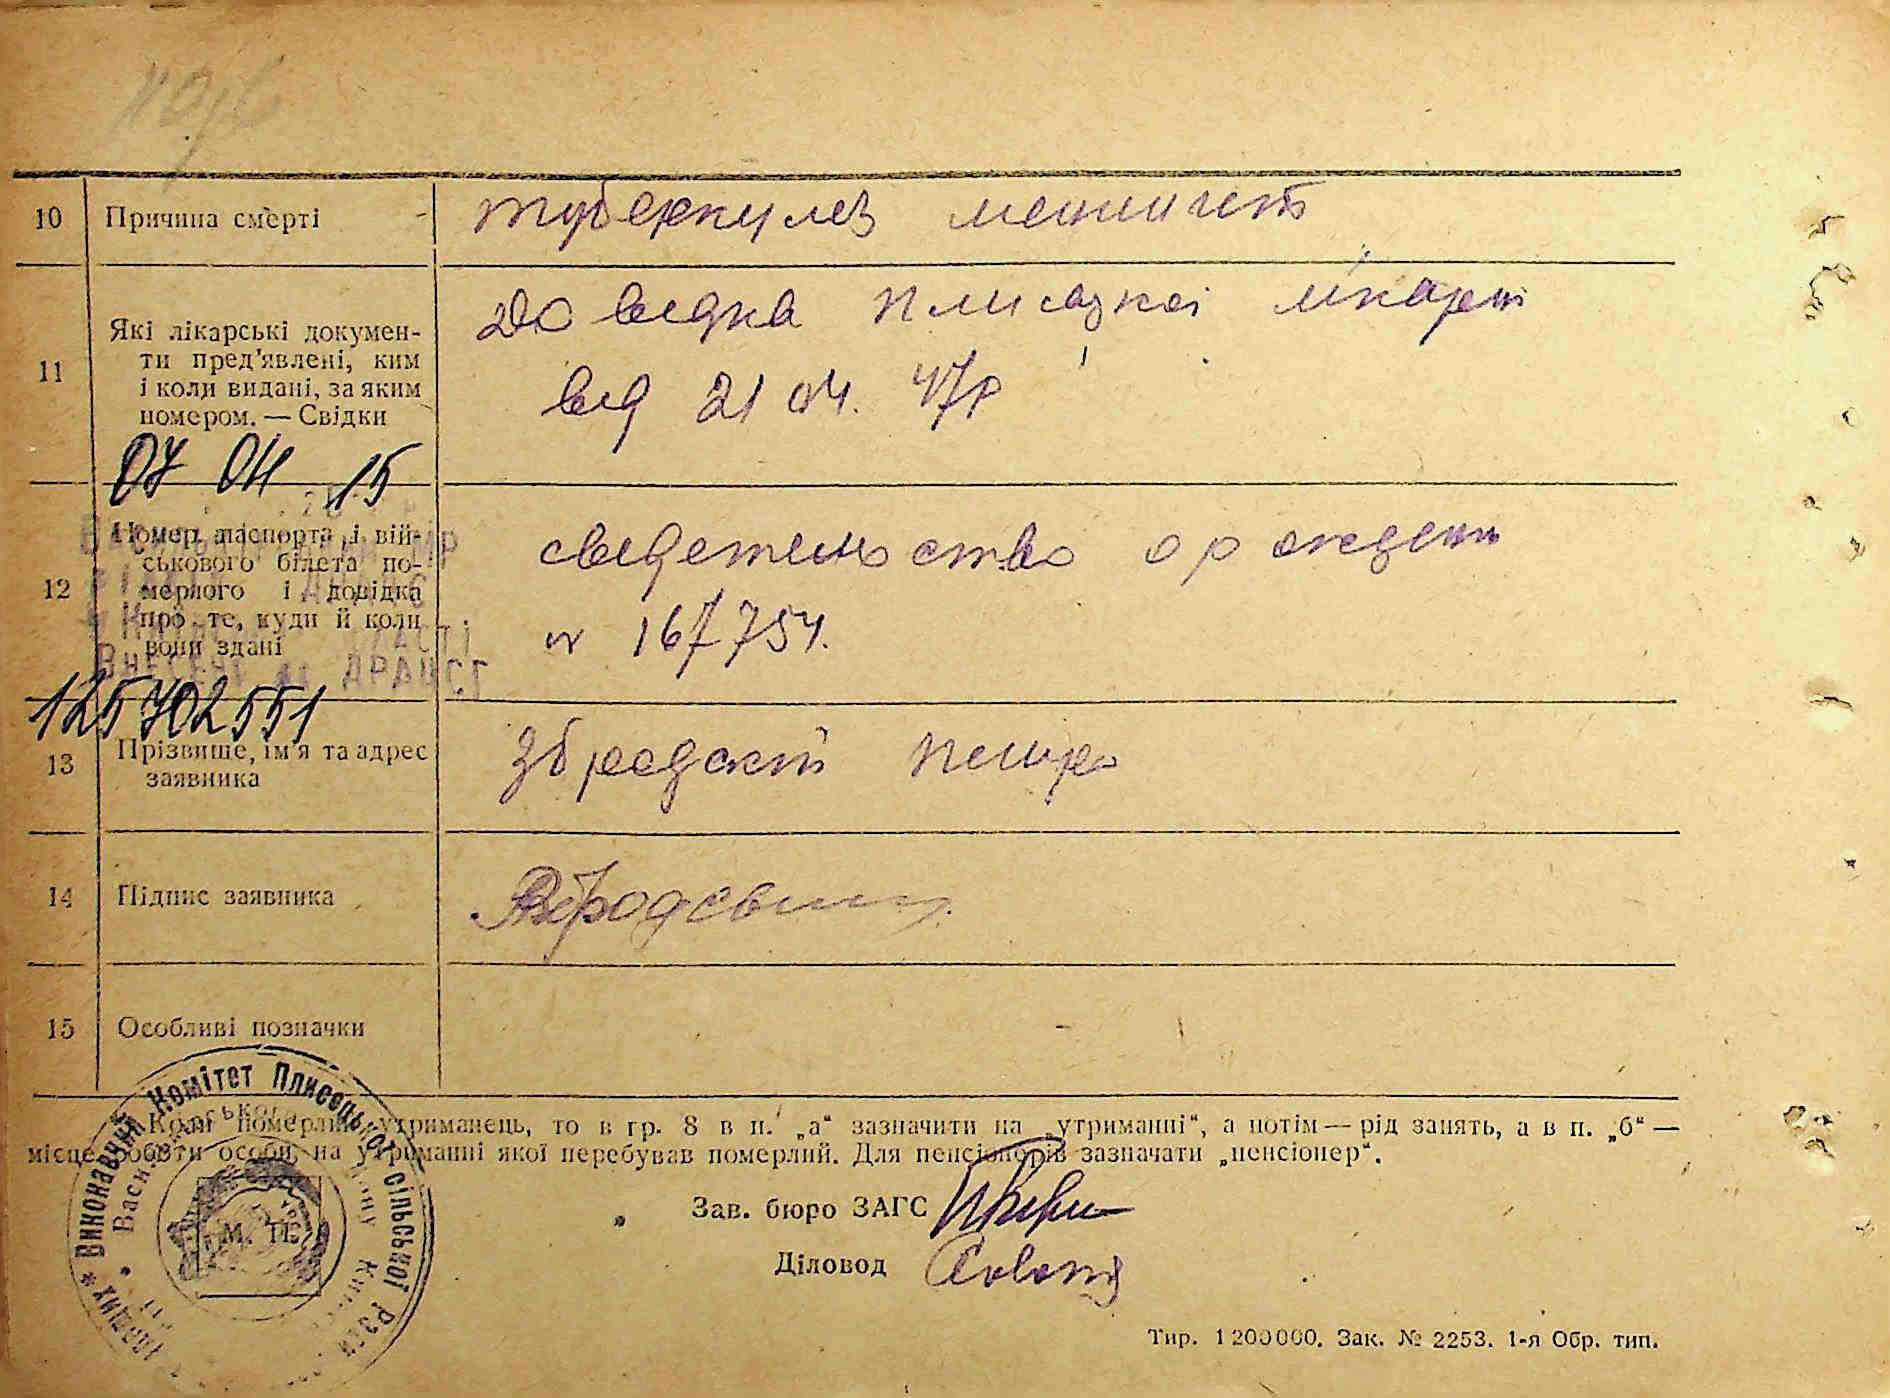 10 Причина смерті туберкулез менингит
11 Які лікарські докумен-
ти пред'явлені, ким
і коли видані, за яким
номером. — Свідки
Довидка Плисецкої лікарні
вид 21 04. 47р
07 04 15
12 Номер паспорта і вій-
ськового білета по-
мерлого і довідка
про те, куди й коли
вони здані
сведетельство о рождени
N 167754.
125702551
13 Прізвище, ім'я та адрес
заявника
Збродский Петро
14 Підпис заявника
15 Особливі позначки
Коли померлий утриманець, то в гр. 8 в п. „а“ зазначити на „утриманні“, а потім — рід занять, а в п. „б“ —
місце роботи особи, на утриманні якої перебував померлий. Для пенсіонерів зазначати „пенсіонер“.
Виконавчий Комітет Плисецької сільської Ради
М. П.
Зав. бюро ЗАГС
Діловод
Тир. 1200000. Зак. № 2253. 1-я Обр. тип.